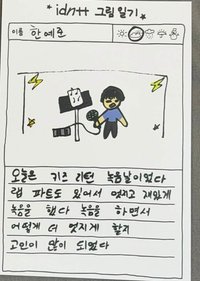 * idntt 그림 일기 *
이름 한예준
오늘은 키즈 리턴 녹음날이었다
랩 파트도 있어서 멋지고 재밌게
녹음을 했다 녹음을 하면서
어떻게 더 멋지게 할지
고민이 많이 되었다